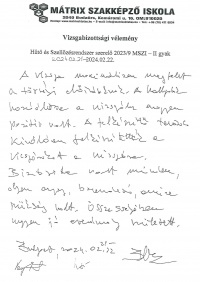 MÁTRIX SZAKKÉPZŐ ISKOLA
Vizsgabizottsági vélemény
Hűtő és Szellőzésrendszer szerelő 2023/9 MSZI – II gyak
2024.02.21-2024.02.22.
A vizsga maximálisan megfelelt
a törvényi előírásnak. A hallgatók
hozzáállása a vizsgához nagyon
pozitív volt. A felkészítő tanárok
kiválóan felkészítették a
vizsgázókat a vizsgára.
Biztosítva volt minden,
olyan anyag, amire
szükség volt. Összességében
nagyon jó eredmény született.
Budapest, 2024.02.22